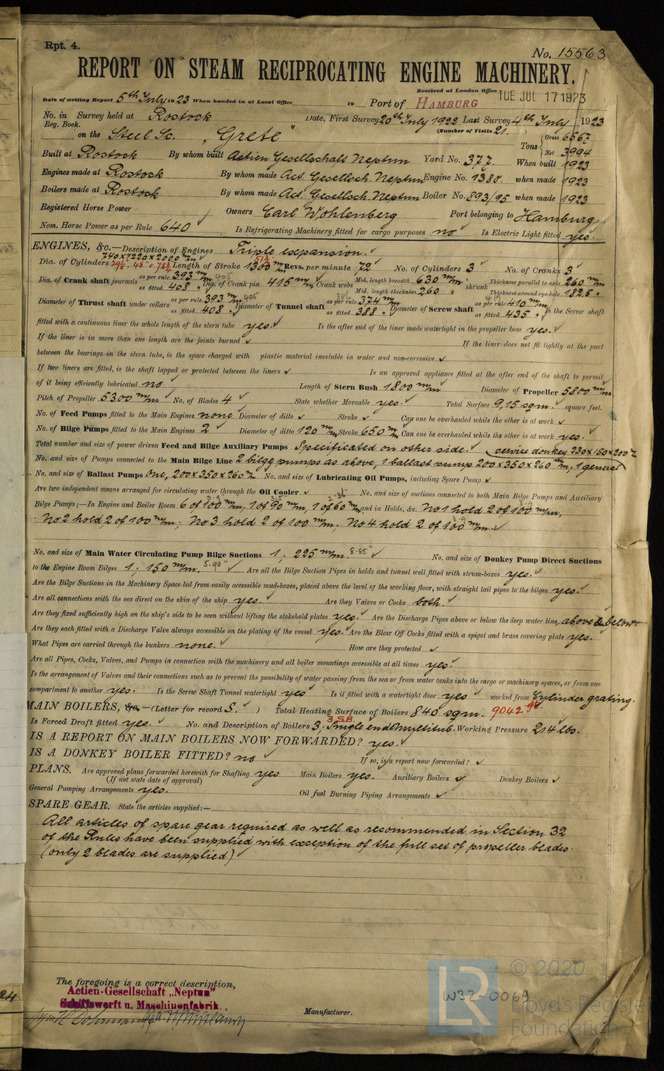 Rpt. 4.
No. 15563
REPORT ON STEAM RECIPROCATING ENGINE MACHINERY.
Received at London Office TUE JUL 17 1923
Date of writing Report 5th July 1923 When handed in at Local Office 19 Port of HAMBURG
No. in Reg. Book. Survey held at Rostock Date, First Survey 20th July 1922 Last Survey 4th July 1923
(Number of Visits 21.
on the Steel Sc. "Grete" Tons Gross 6567 Net 3994
Built at Rostock By whom built Actien Gesellschaft Neptun Yard No. 377 When built 1923
Engines made at Rostock By whom made Act. Gesellsch. Neptun Engine No. 1380 when made 1923
Boilers made at Rostock By whom made Act. Gesellsch. Neptun Boiler No. 893/95 when made 1923
Registered Horse Power Owners Carl Wohlenberg Port belonging to Hamburg
Nom. Horse Power as per Rule 640 Is Refrigerating Machinery fitted for cargo purposes no Is Electric Light fitted yes.
ENGINES, &c.—Description of Engines Triple expansion.
Dia. of Cylinders 740x1220x2000 m/m Length of Stroke 1300 m/m Revs. per minute 72 No. of Cylinders 3 No. of Cranks 3
Dia. of Crank shaft journals as per rule 393 m/m as fitted 408 Dia. of Crank pin 415 m/m Crank webs Mid. length breadth 630 m/m Mid. length thickness 260 shrunk Thickness parallel to axis 260 m/m Thickness around eye-hole 182.5
Diameter of Thrust shaft under collars as per rule 393 m/m as fitted 408 Diameter of Tunnel shaft as per rule 374 m/m as fitted 388 Diameter of Screw shaft as per rule 410 m/m as fitted 435 Is the Screw shaft
fitted with a continuous liner the whole length of the stern tube yes. Is the after end of the liner made watertight in the propeller boss yes.
If the liner is in more than one length are the joints burned If the liner does not fit tightly at the part
between the bearings in the stern tube, is the space charged with plastic material insoluble in water and non-corrosive
If two liners are fitted, is the shaft lapped or protected between the liners Is an approved appliance fitted at the after end of the shaft to permit
of it being efficiently lubricated no Length of Stern Bush 1800 m/m Diameter of Propeller 5800 m/m
Pitch of Propeller 5300 m/m No. of Blades 4 State whether Moveable yes. Total Surface 9,15 sqm. square feet.
No. of Feed Pumps fitted to the Main Engines none Diameter of ditto Stroke Can one be overhauled while the other is at work
No. of Bilge Pumps fitted to the Main Engines 2 Diameter of ditto 120 m/m Stroke 650 m/m Can one be overhauled while the other is at work yes.
Total number and size of power driven Feed and Bilge Auxiliary Pumps Specificated on other side. (service donkey 230x150x200
No. and size of Pumps connected to the Main Bilge Line 2 bilge pumps as above, 1 ballast pump 200x350x260 m/m, 1 general
No. and size of Ballast Pumps One, 200x350x260 No. and size of Lubricating Oil Pumps, including Spare Pump
Are two independent means arranged for circulating water through the Oil Cooler No. and size of suctions connected to both Main Bilge Pumps and Auxiliary
Bilge Pumps;—In Engine and Boiler Room 6 of 100 m/m, 1 of 90 m/m, 1 of 60 m/m and in Holds, &c. No 1 hold 2 of 100 m/m,
No 2 hold 2 of 100 m/m, No 3 hold 2 of 100 m/m. No 4 hold 2 of 100 m/m.
No. and size of Main Water Circulating Pump Bilge Suctions 1, 225 m/m. No. and size of Donkey Pump Direct Suctions
to the Engine Room Bilges 1, 150 m/m. Are all the Bilge Suction Pipes in Holds and tunnel well fitted with strum-boxes yes.
Are the Bilge Suctions in the Machinery Space led from easily accessible mud-boxes, placed above the level of the working floor, with straight tail pipes to the bilges yes.
Are all connections with the sea direct on the skin of the ship yes. Are they Valves or Cocks both.
Are they fixed sufficiently high on the ship's side to be seen without lifting the stokehold plates yes. Are the Discharge Pipes above or below the deep water line above & below
Are they each fitted with a Discharge Valve always accessible on the plating of the vessel yes. Are the Blow Off Cocks fitted with a spigot and brass covering plate yes.
What Pipes are carried through the bunkers none. How are they protected
Are all Pipes, Cocks, Valves, and Pumps in connection with the machinery and all boiler mountings accessible at all times yes.
Is the arrangement of Valves and their connections such as to prevent the possibility of water passing from the sea or from water tanks into the cargo or machinery spaces, or from one
compartment to another yes. Is the Screw Shaft Tunnel watertight yes Is it fitted with a watertight door yes worked from Cylinder grating.
MAIN BOILERS, &c.—(Letter for record S. ) Total Heating Surface of Boilers 840 sqm. 9042
Is Forced Draft fitted yes. No. and Description of Boilers 3, Single end multitub. Working Pressure 214 lbs.
IS A REPORT ON MAIN BOILERS NOW FORWARDED? yes.
IS A DONKEY BOILER FITTED? no If so, is a report now forwarded?
PLANS. Are approved plans forwarded herewith for Shafting yes Main Boilers yes. Auxiliary Boilers Donkey Boilers
(If not state date of approval)
General Pumping Arrangements yes. Oil fuel Burning Piping Arrangements
SPARE GEAR. State the articles supplied:—
All articles of spare gear required as well as recommended in Section 32
of the Rules have been supplied with exception of the full set of propeller blades.
(only 2 blades are supplied)
The foregoing is a correct description,
Actien-Gesellschaft „Neptun"
Schiffswerft u. Maschinenfabrik.
Manufacturer.
W32-0069
LR
© 2020
Lloyd's Register
Foundation
24